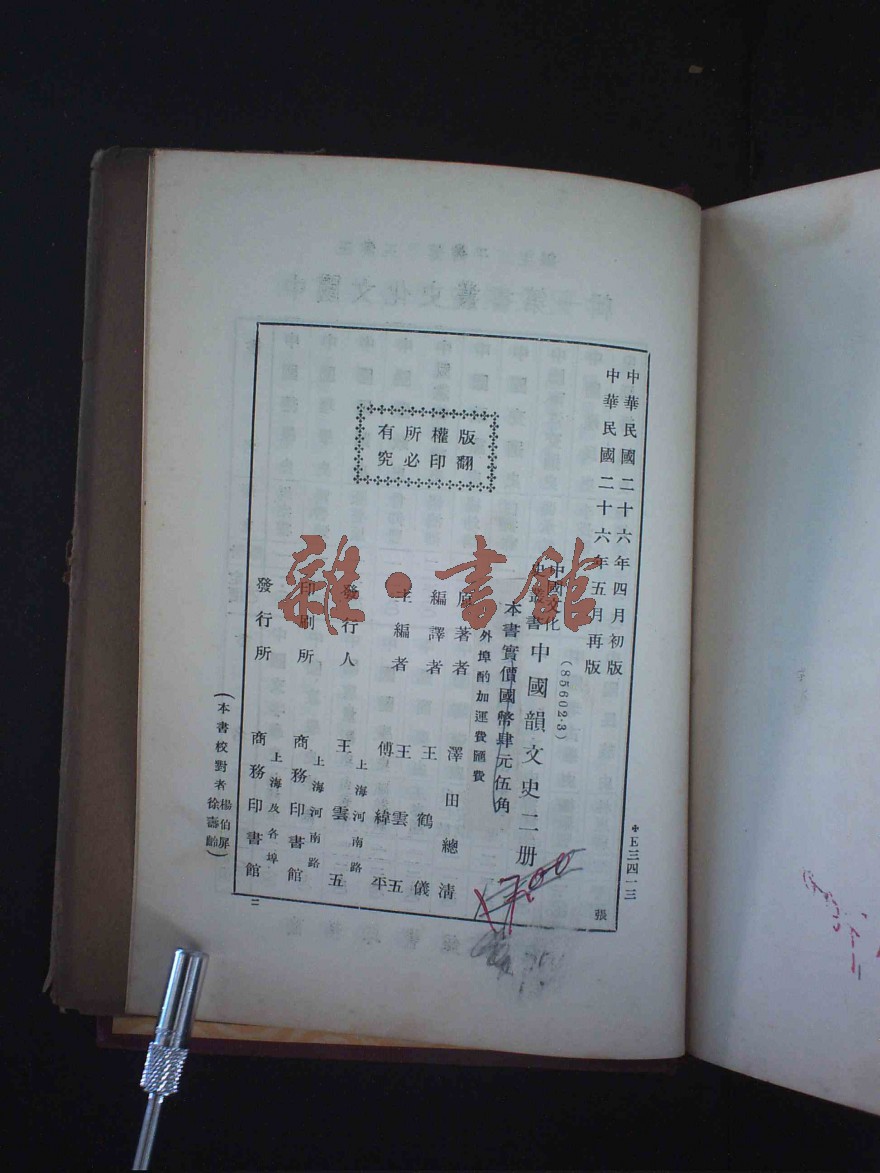 中華民國二十六年四月初版
中華民國二十六年五月再版
✤E三四一三
張
(85602·3)
中國文化史叢書
中國韻文史二册
本書實價國幣肆元伍角
外埠酌加運費匯費
原著者 澤田總清
編譯者 王鶴儀
主編者 王雲五 傅緯平
發行人 王雲五
上海河南路
印刷所 商務印書館
上海河南路
發行所 商務印書館
上海及各埠
(本書校對者 楊伯屏 徐壽齡)
二
版權所有
翻印必究
雜·書館